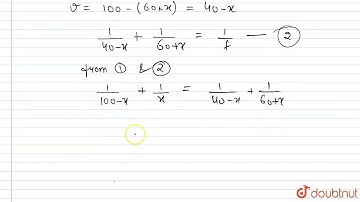 v = 100 - (60+x) = 40-x
1/40-x + 1/60+x = 1/f — ②
from ① & ②
1/100-x + 1/x = 1/40-x + 1/60+x
doubtnut